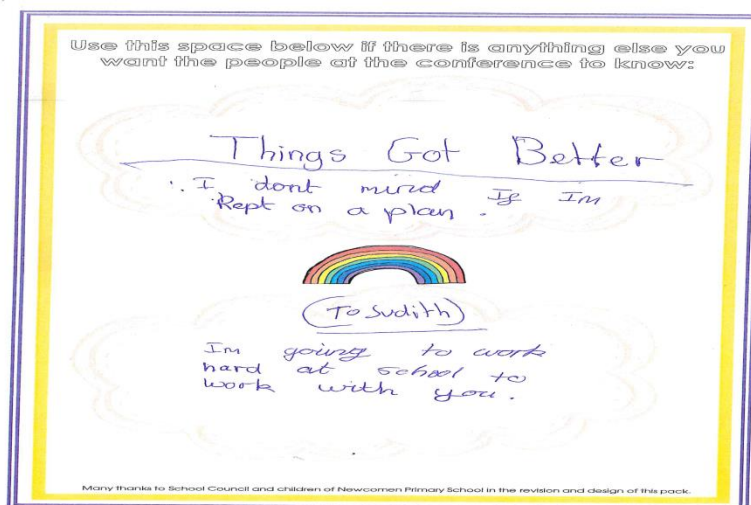 Use this space below if there is anything else you
want the people at the conference to know:
Things Got Better
I dont mind If Im
Kept on a plan.
To Judith
Im going to work
hard at school to
work with you.
Many thanks to School Council and children of Newcomen Primary School in the revision and design of this pack.